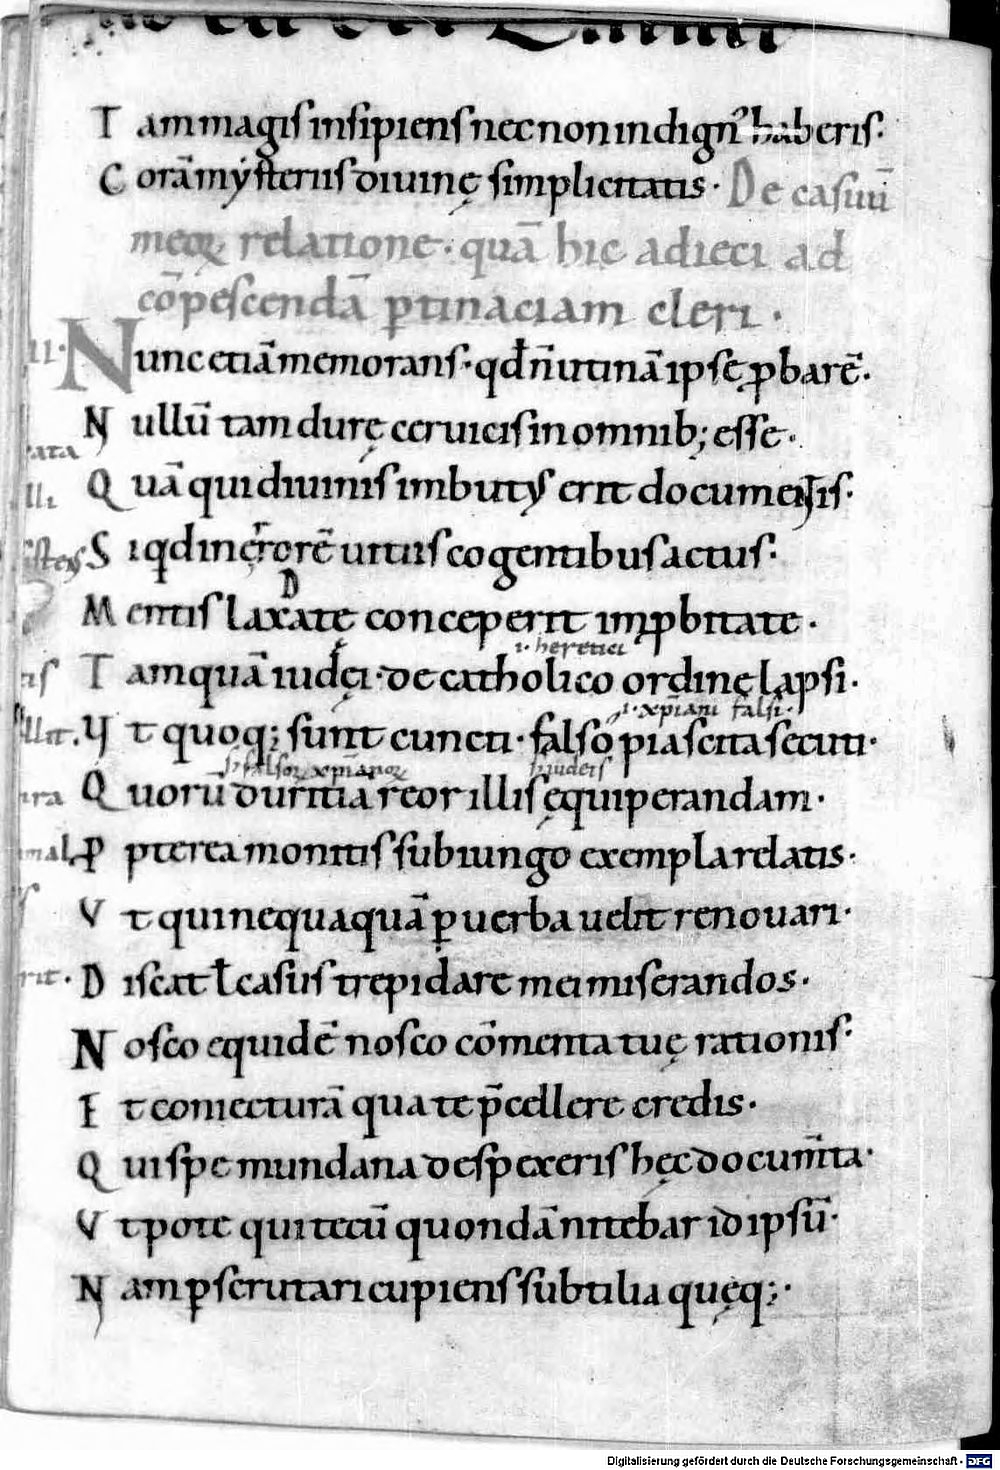 Tam magis insipiens nec non indign' haberis.
Corā mẏsteriis diuinę simplicitatis. De casuū
meoꝝ relatione. quā hic adieci ad
cōpescendā ꝑtinaciam cleri.
II. Nunc etiā memorans. qđ n̄ utinā ipse ꝓbarē.
Nullū tam durę ceruicis in omnib; esse.
Quā qui diuinis imbutus erit documentis.
Si qd in ęrrorē uitiis cogentibus actus.
D
Mentis laxatę conceperit imꝓbitate.
.i. heretici
Tamquā iudęi. de catholico ordine lapsi.
.i. xp̄iani falsi.
Vt quoq; sunt cuncti. falso pia scita secuti.
s. falsoꝝ xp̄ianoꝝ s. iudeis
Quorū duritia reor illis ęquiperandam.
Ꝓpterea monitis subiungo exempla relatis.
Vt qui nequaquā ꝑ uerba uelit renouari.
Discat ł casus trepidare mei miserandos.
Nosco equidē nosco cōmenta tuę rationis.
Et coniecturā qua te p̄cellere credis.
Qui spe mundana despexeris hęc documīta.
Vtpote qui tecū quondā nitebar id ipsū.
Nam ꝑscrutari cupiens subtilia quęq;.
ata
lli
istens
is
llit.
ira
mal
s
rit.
Digitalisierung gefördert durch die Deutsche Forschungsgemeinschaft - DFG